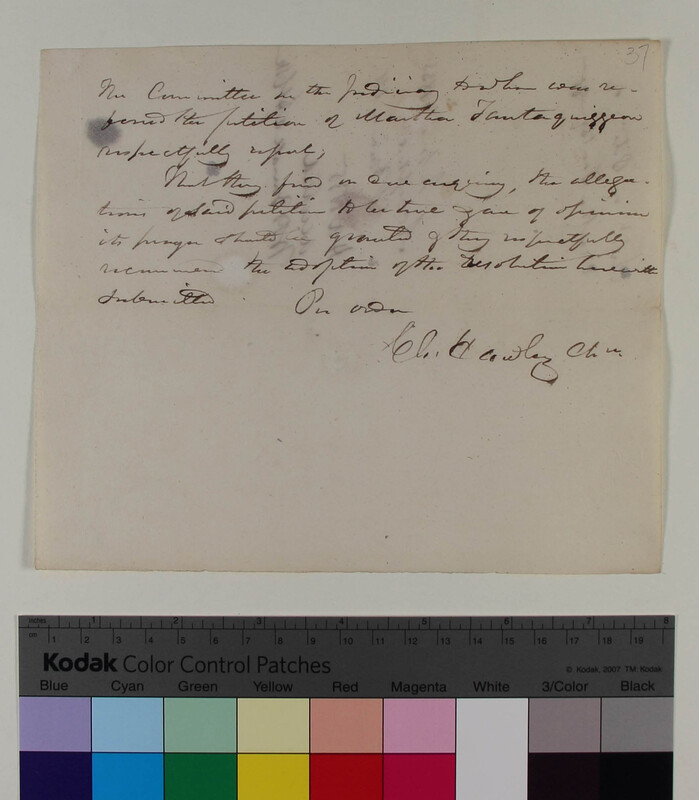 37
The Committee on the Judiciary to whom was re-
ferred the petition of Martha Tantaquiggeon
respectfully report;
That they find on due enquiry, the allega-
tions of said petition to be true & are of opinion
its prayer should be granted & they respectfully
recommend the adoption of the resolution herewith
submitted. Per order
Ch. Hawley Chm.
inches 1 2 3 4 5 6 7 8
cm 1 2 3 4 5 6 7 8 9 10 11 12 13 14 15 16 17 18 19
Kodak Color Control Patches © Kodak, 2007 TM: Kodak
Blue Cyan Green Yellow Red Magenta White 3/Color Black